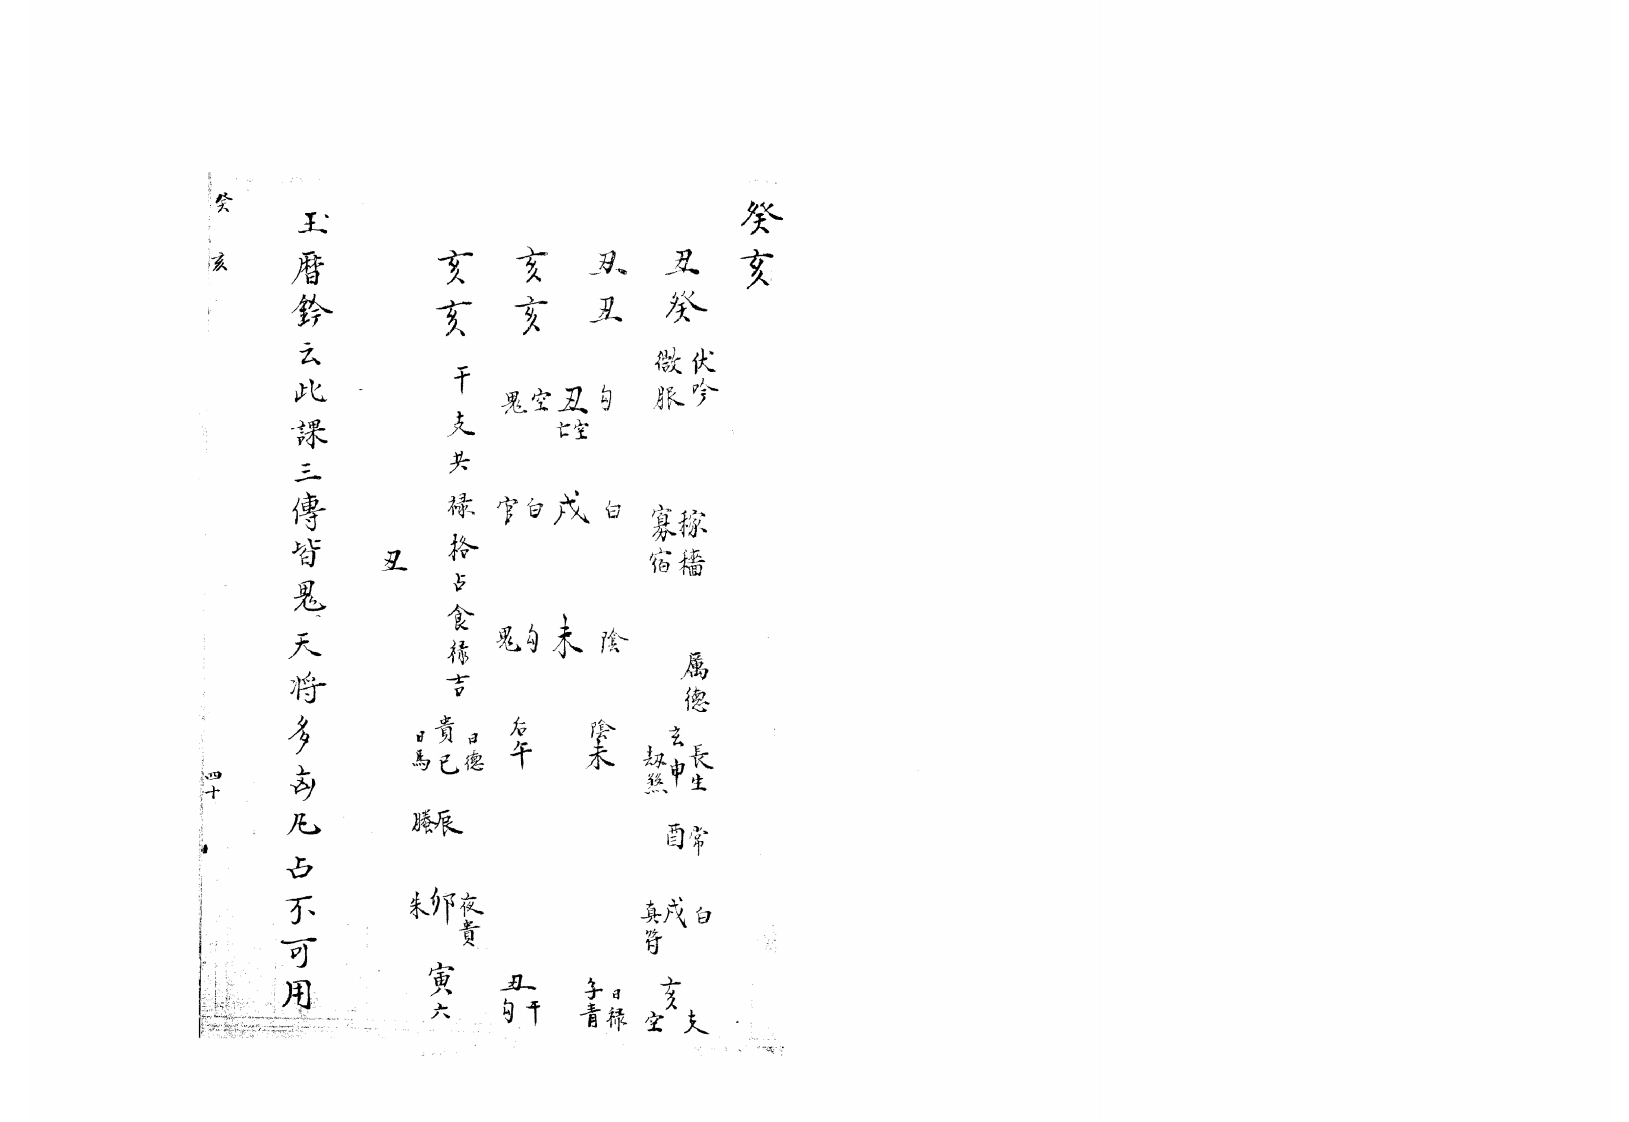 癸亥
丑癸
伏吟
微服
稼穡
寡宿
属德
丑丑
勾
丑
空亡
空
鬼
白
戌
白
官
陰
未
勾
鬼
亥亥
亥亥
干支共禄格占食禄吉
丑
長生
玄申
劫煞
陰未
后午
日德
貴巳
日馬
常
酉
辰
螣
白
戌
真符
夜貴
卯
朱
支
亥
空
日禄
子青
丑
干
勾
寅六
玉曆鈐云此課三傳皆鬼天将多凶凡占不可用
癸亥
四十